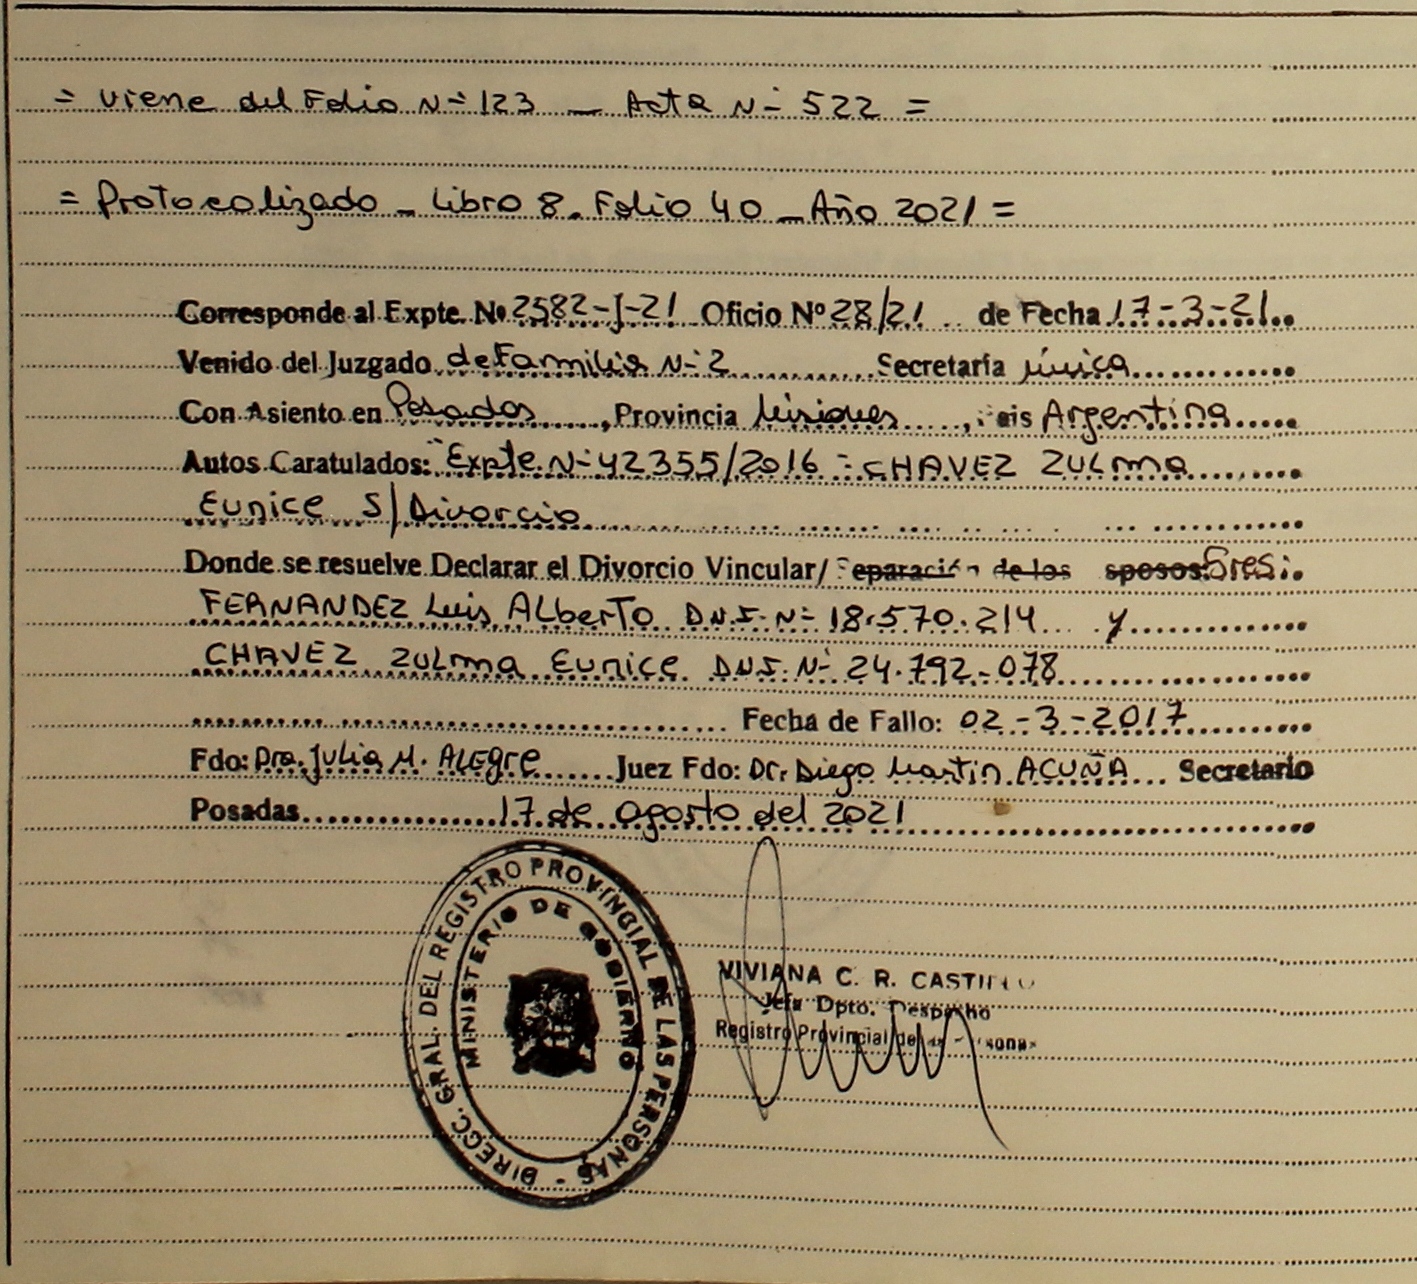 = Viene del Folio Nº 123 _ Acta Nº 522 =
= Protocolizado _ Libro 8. Folio 40 _ Año 2021 =
Corresponde al Expte. Nº 2582-J-21 Oficio Nº 28/21 de Fecha 17-3-21
Venido del Juzgado de Familia Nº 2 Secretaría única
Con Asiento en Posadas, Provincia Misiones, Pais Argentina
Autos Caratulados: Expte. Nº 42355/2016 - CHAVEZ ZULma
Eunice S/Divorcio
Donde se resuelve Declarar el Divorcio Vincular/ Separación de los sposos: Sres:
FERNANDEZ Luis ALberto D.N.I. Nº 18.570.214 y
CHAVEZ ZULma Eunice D.N.I. Nº 24.792.078
Fecha de Fallo: 02-3-2017
Fdo: Dra. Julia M. ALEgre Juez Fdo: Dr. Diego Martin ACUÑA Secretario
Posadas 17 de agosto del 2021
DIRECC. GRAL. DEL REGISTRO PROVINCIAL DE LAS PERSONAS -
MINISTERIO DE GOBIERNO
VIVIANA C. R. CASTILLO
Jefa Dpto. Despacho
Registro Provincial de las Personas